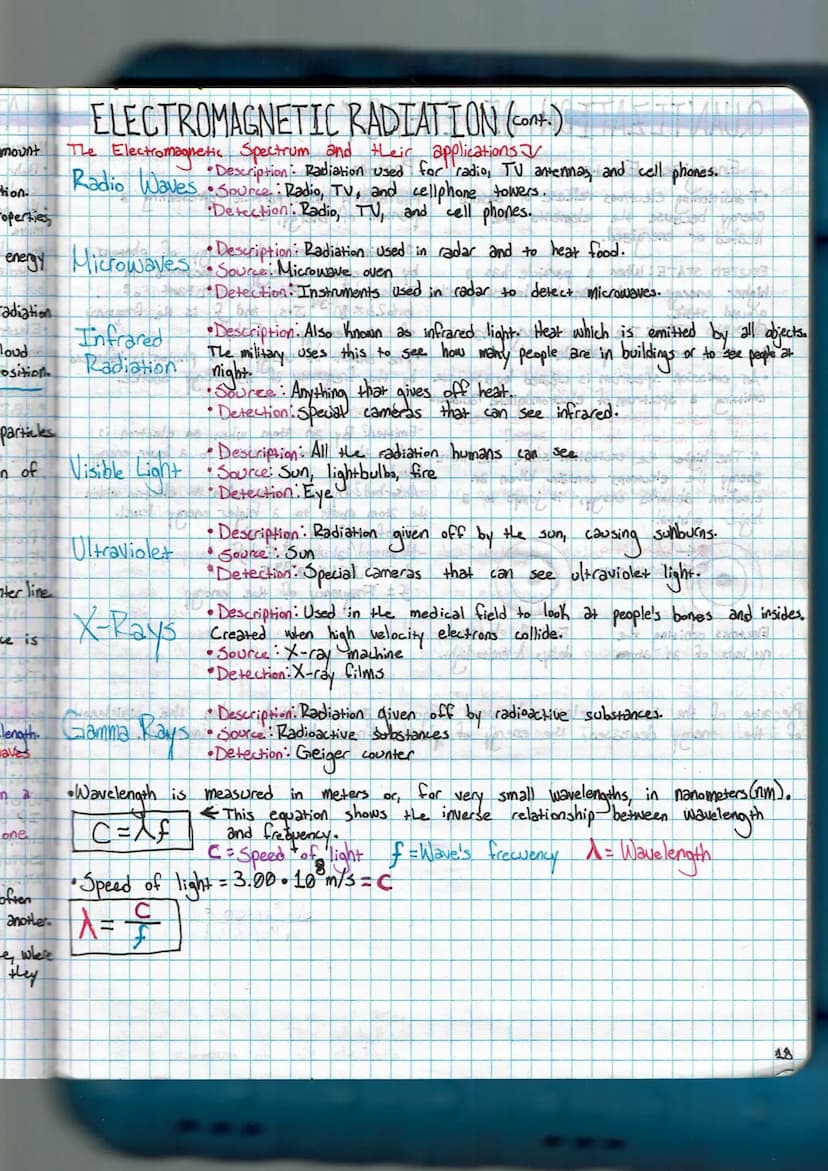 ELECTROMAGNETIC RADIATION (cont.)
The Electromagnetic Spectrum and their applications
Radio Waves
•Description: Radiation used for radio, TV antennas, and cell phones.
•Source: Radio, TV, and cellphone towers.
•Detection: Radio, TV, and cell phones.
Microwaves
•Description: Radiation used in radar and to heat food.
•Source: Microwave oven
•Detection: Instruments used in radar to detect microwaves.
Infrared
Radiation
•Description: Also known as infrared light. Heat which is emitted by all objects.
The military uses this to see how many people are in buildings or to see people at
night.
•Source: Anything that gives off heat.
•Detection: Special cameras that can see infrared.
Visible Light
•Description: All the radiation humans can see
•Source: Sun, lightbulbs, fire
•Detection: Eye
Ultraviolet
•Description: Radiation given off by the sun, causing sunburns.
•Source: Sun
•Detection: Special cameras that can see ultraviolet light.
X-Rays
•Description: Used in the medical field to look at people's bones and insides.
Created when high velocity electrons collide.
•Source: X-ray machine
•Detection: X-ray films
Gamma Rays
•Description: Radiation given off by radioactive substances.
•Source: Radioactive substances
•Detection: Geiger counter
•Wavelength is measured in meters or, for very small wavelengths, in nanometers (nm).
C = λf
← This equation shows the inverse relationship between wavelength
and frequency.
C = Speed of light f = Wave's frecuency λ = Wavelength
•Speed of light = 3.00 • 10⁸ m/s = C
λ = C/f
18
mount
tion.
operties,
energy
adiation
loud
osition.
particles
n of
ter line
ce is
length.
aves
n a
one
often
another.
e, where
they